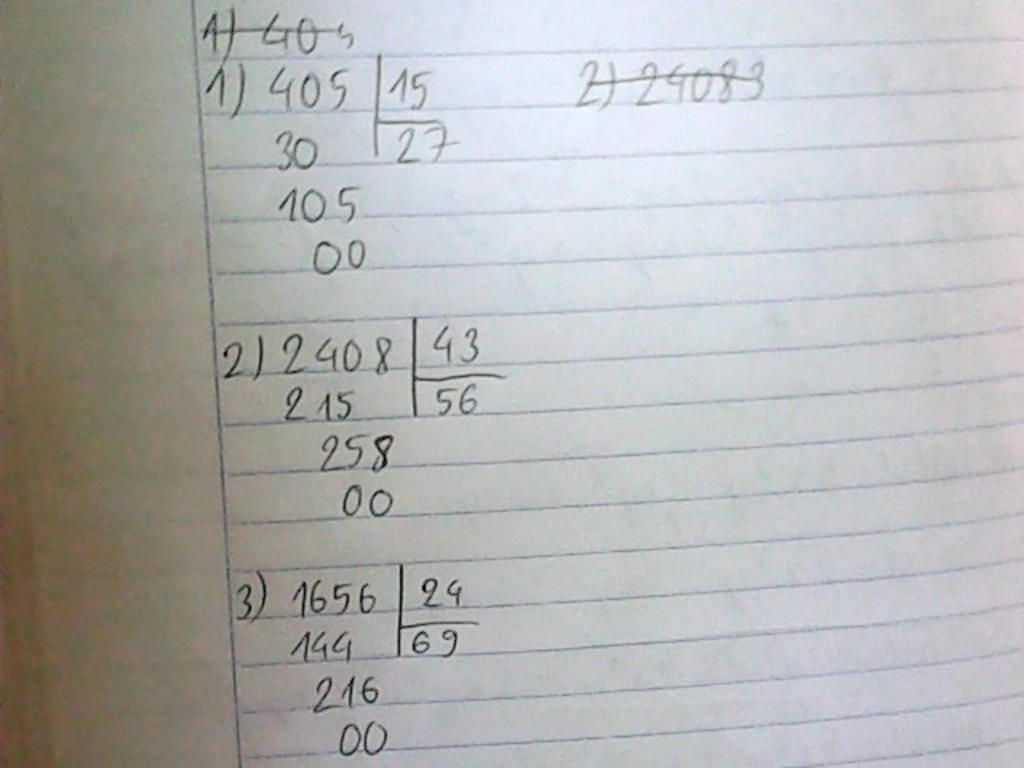 1) 405
1) 405 15
2) 24083
30 27
105
00
2) 2408 43
215 56
258
00
3) 1656 24
144 69
216
00